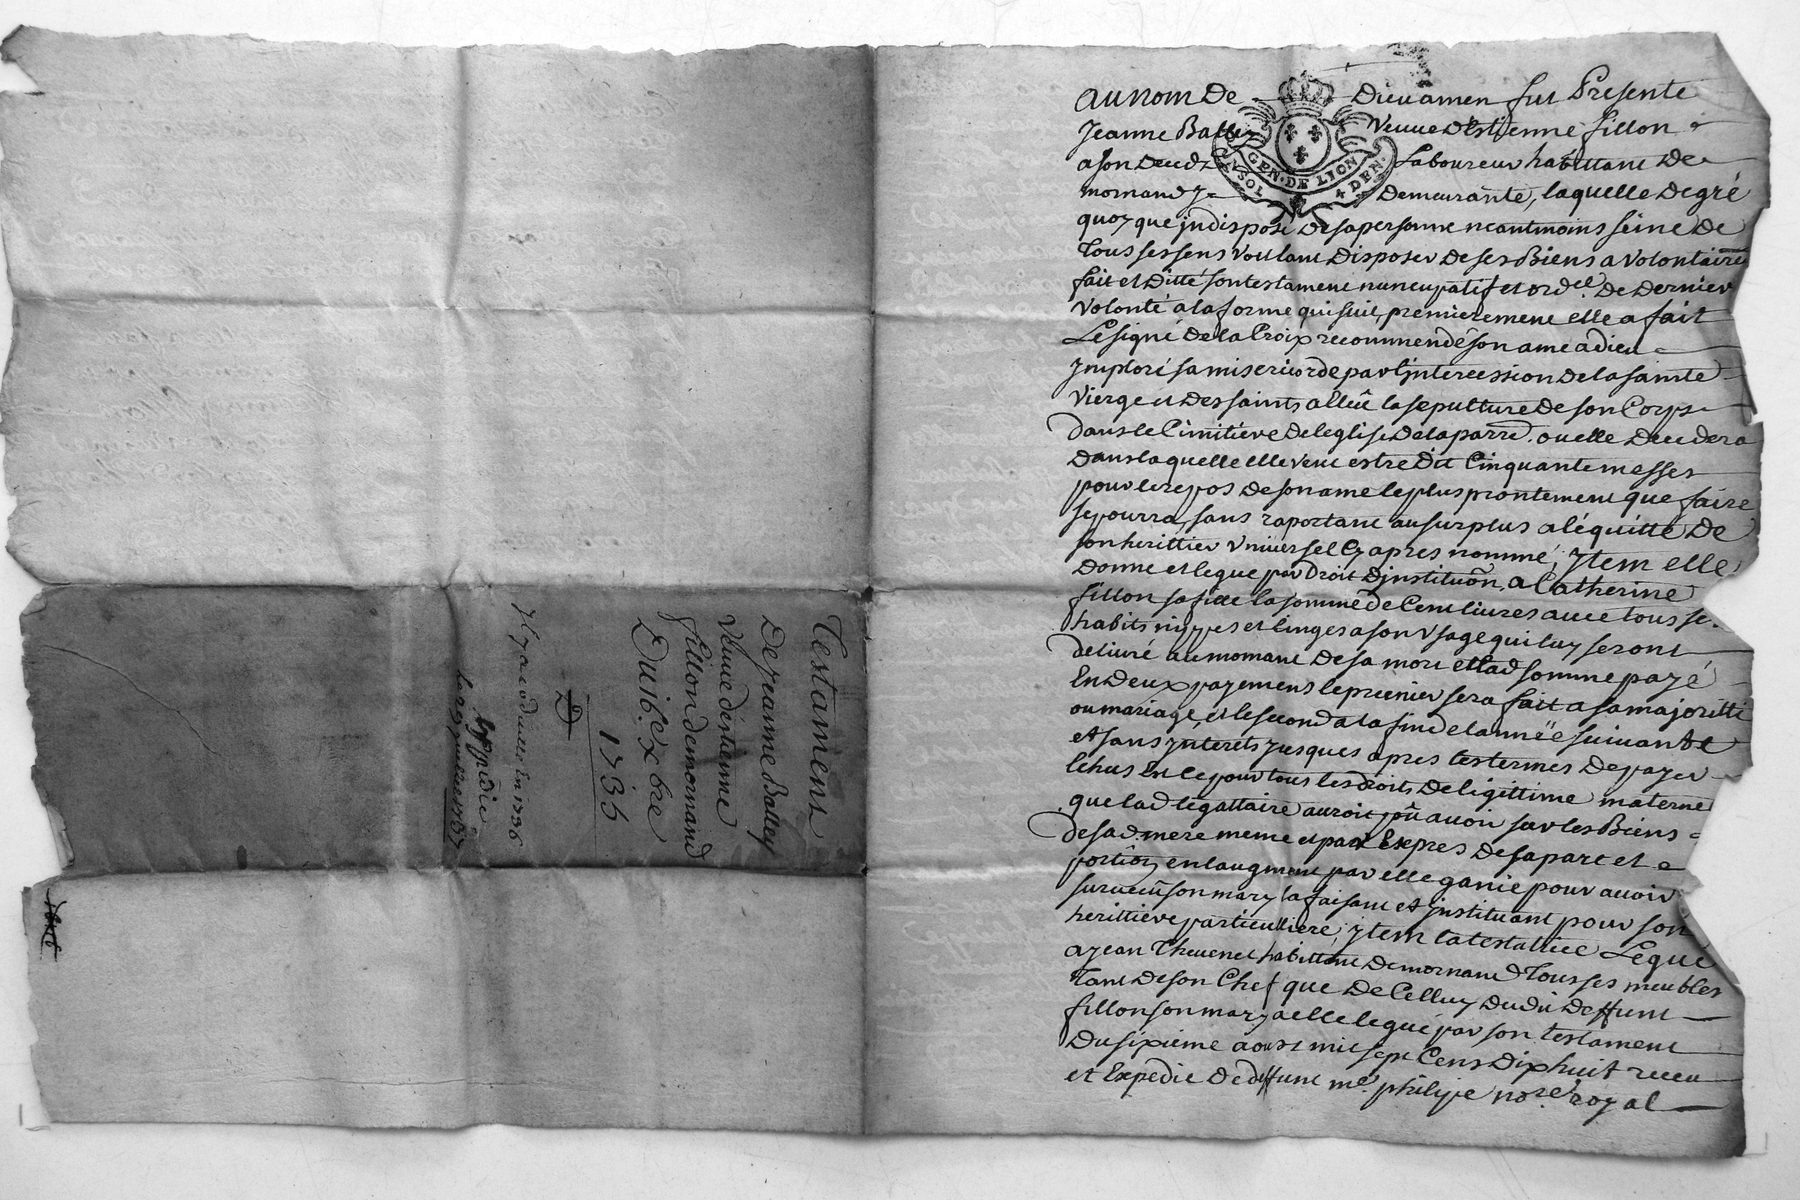 Testament
De jeanne Balley
Veuve d'estienne
fillon de mornand
Du 16.e xbre
1735
Expedié
GEN. DE LION
SOL 4 DEN.
au nom De Dieu amen fut Presente
Jeanne Balley Veuve d'Estienne fillon
a son Laboureur habittant De
mornand y Demeurante, laquelle De gré
quoy que indisposé De sa personne neantmoins seine De
Tous ses sens voullant Disposer De ses Biens a volontairem
fait et Ditté son testament nuncupatif et ord.ce De Dernier
volonté a la forme qui suit, premierement elle a fait
Le signe De la Croix recommendé son ame a dieu
Imploré sa misericorde par l'intercession De la sainte
Vierge et Des saints alleü la sepulture De son Corps
Dans le Cimitiere De l'eglise De la parre. ou elle Decedera
Dans laquelle elle veut estre Dit Cinquante messes
pour le repos De son ame le plus promtement que faire
se pourra, sans raportant au surplus a l'équitté De
son herittier Universel Cy apres nommé, Item elle
Donne et legue par Droit D'institüon, a Catherine
fillon sa fille la somme de Cent livres avec tous se.
habits nippes et linges a son Usage qui luy seront
Delivré au momant De sa mort et lad somme payé
En Deux payemens le premier sera fait a sa majoritti
ou mariage, et le second a la fin de l'anneë suivante
et sans Interets jusques apres les termes De payer
Echus Et Ce pour tous les droits De legittime materne
que lad legattaire auroit pû avoir sur les Biens
De sad mere meme et par Expres De sa part et
portion en l'augment par elle ganié pour avoir
survecu son mary la faisant et Instituant pour son
herittiere particulliere, Item la testatrice Legue
a jean Thevenet habittant De mornand Tous ses meubles
Tant De son Chef que De Celluy Dudit Deffunt
fillon son mary a elle legué par son testament
Du sixieme aoust mil sept Cens Dixhuit receu
et Expedie De deffunt me. philipe nore. Royal